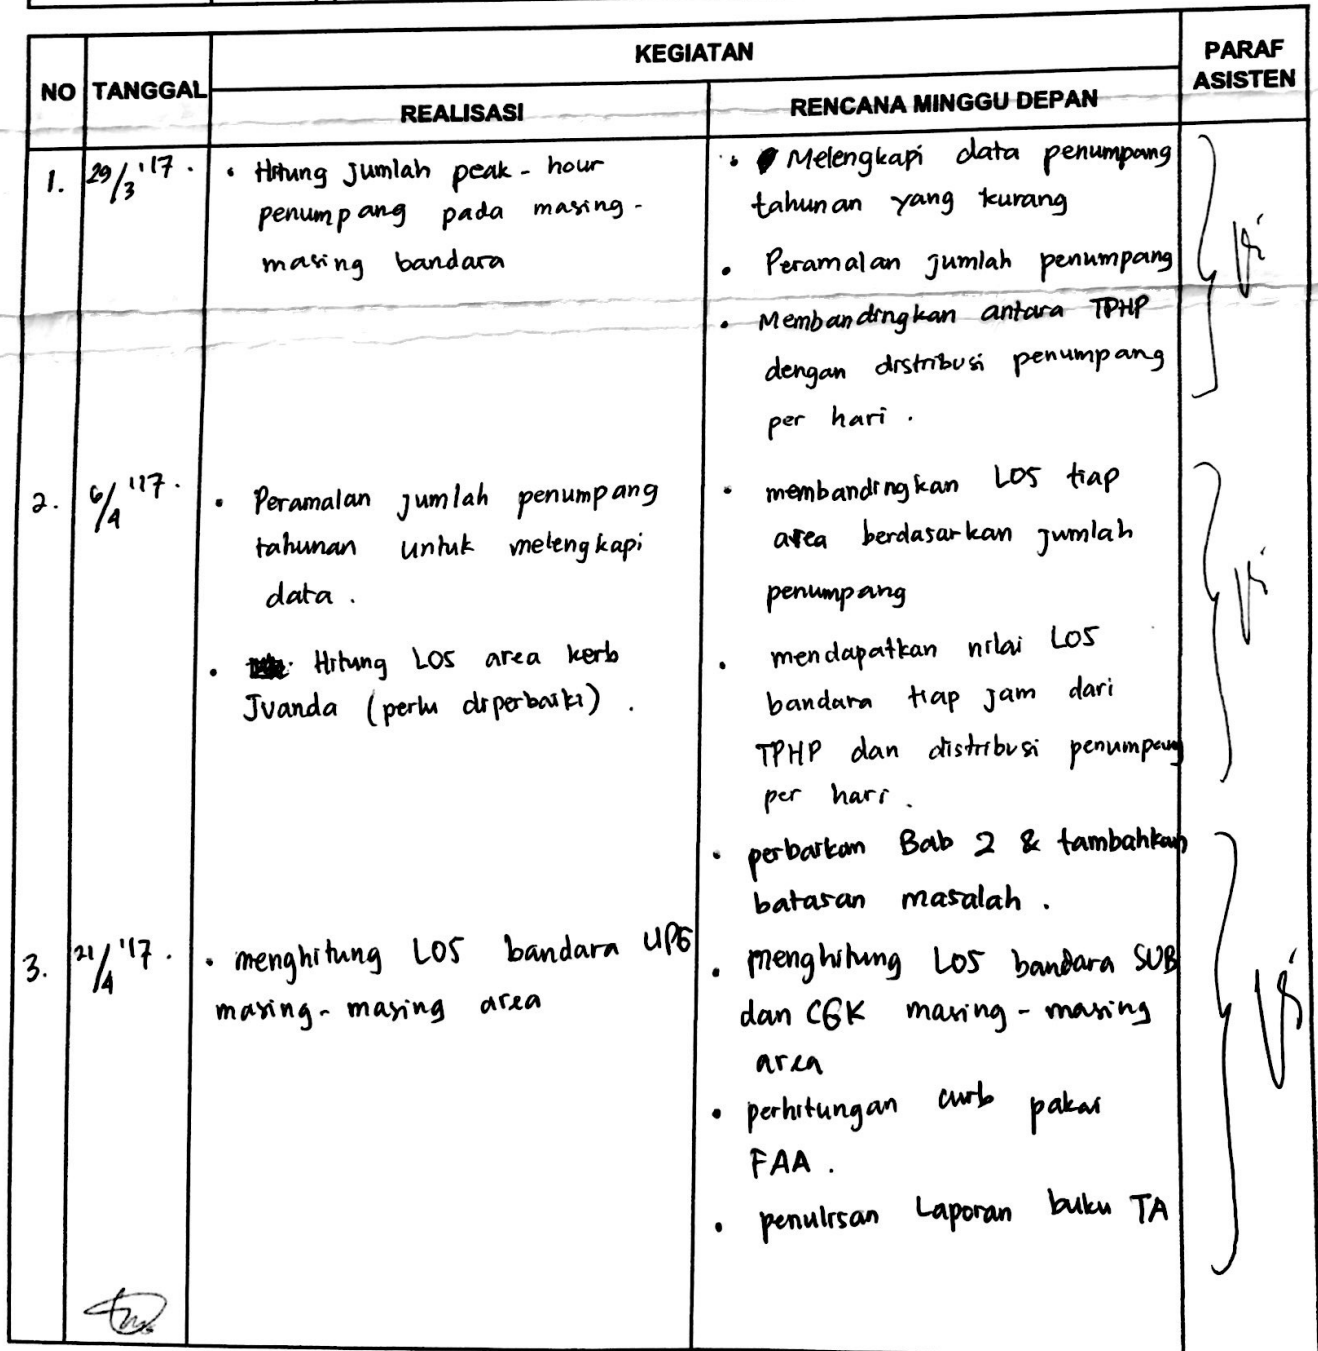 KEGIATAN
PARAF
ASISTEN
NO
TANGGAL
REALISASI
RENCANA MINGGU DEPAN
1.
29/3 '17.
• Hitung jumlah peak - hour
penumpang pada masing -
masing bandara
• Melengkapi data penumpang
tahunan yang kurang
• Peramalan jumlah penumpang
• Membandingkan antara TPHP
dengan distribusi penumpang
per hari .
2.
6/4 '17.
• Peramalan jumlah penumpang
tahunan untuk melengkapi
data .
• Hitung LOS area kerb
Juanda (perlu diperbaiki) .
• membandingkan LOS tiap
area berdasarkan jumlah
penumpang
• mendapatkan nilai LOS
bandara tiap jam dari
TPHP dan distribusi penumpang
per hari .
• perbaikan Bab 2 & tambahkan
batasan masalah .
3.
21/4 '17.
• menghitung LOS bandara UPG
masing - masing area
• menghitung LOS bandara SUB
dan CGK masing - masing
area
• perhitungan curb pakai
FAA .
• penulisan Laporan buku TA